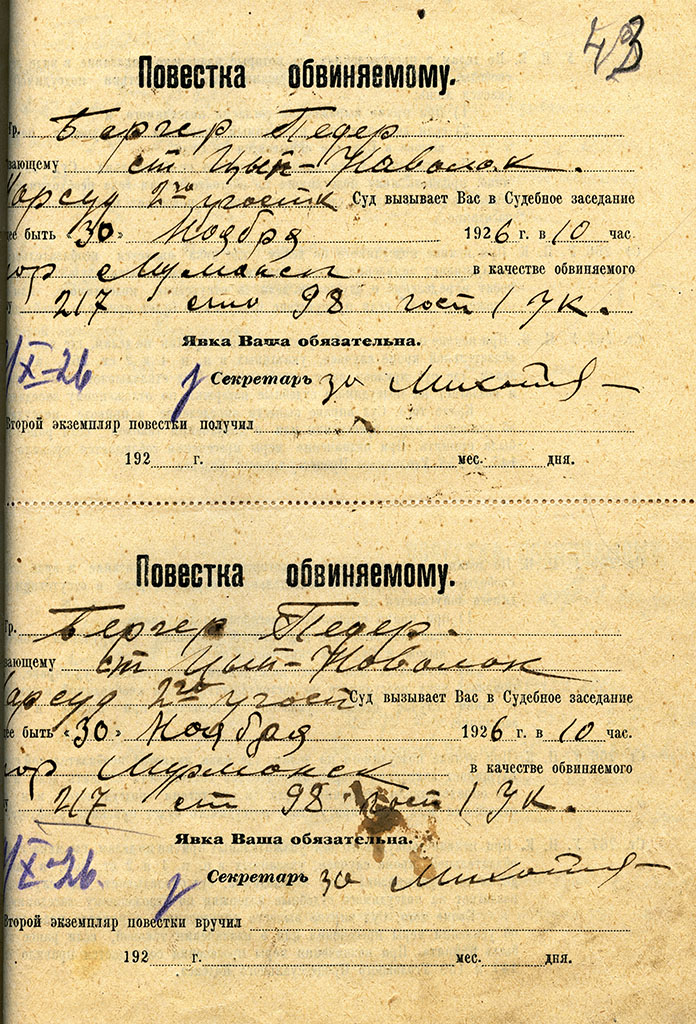 43
Повестка обвиняемому.
Гр. Бергер Педер
вающему ст Цып-Наволок.
Нарсуд 2го участк Суд вызывает Вас в Судебное заседание
быть 30» Ноября 1926 г. в 10 час
гор Мурманск в качестве обвиняемого
217 98 1 УК.
Явка Ваша обязательна.
/X-26 Секретарь за
Второй экземпляр повестки получил
192 г. мес. дня.
Повестка обвиняемому.
Гр. Бергер Педер.
вающему ст Цып-Наволок
арсуд 2го Суд вызывает Вас в Судебное заседание
быть «30» Ноября 1926 г. в 10 час.
гор Мурманск в качестве обвиняемого
217 ст 98 1 УК.
Явка Ваша обязательна.
/X-26. Секретарь за
Второй экземпляр повестки вручил
192 г. мес. дня.